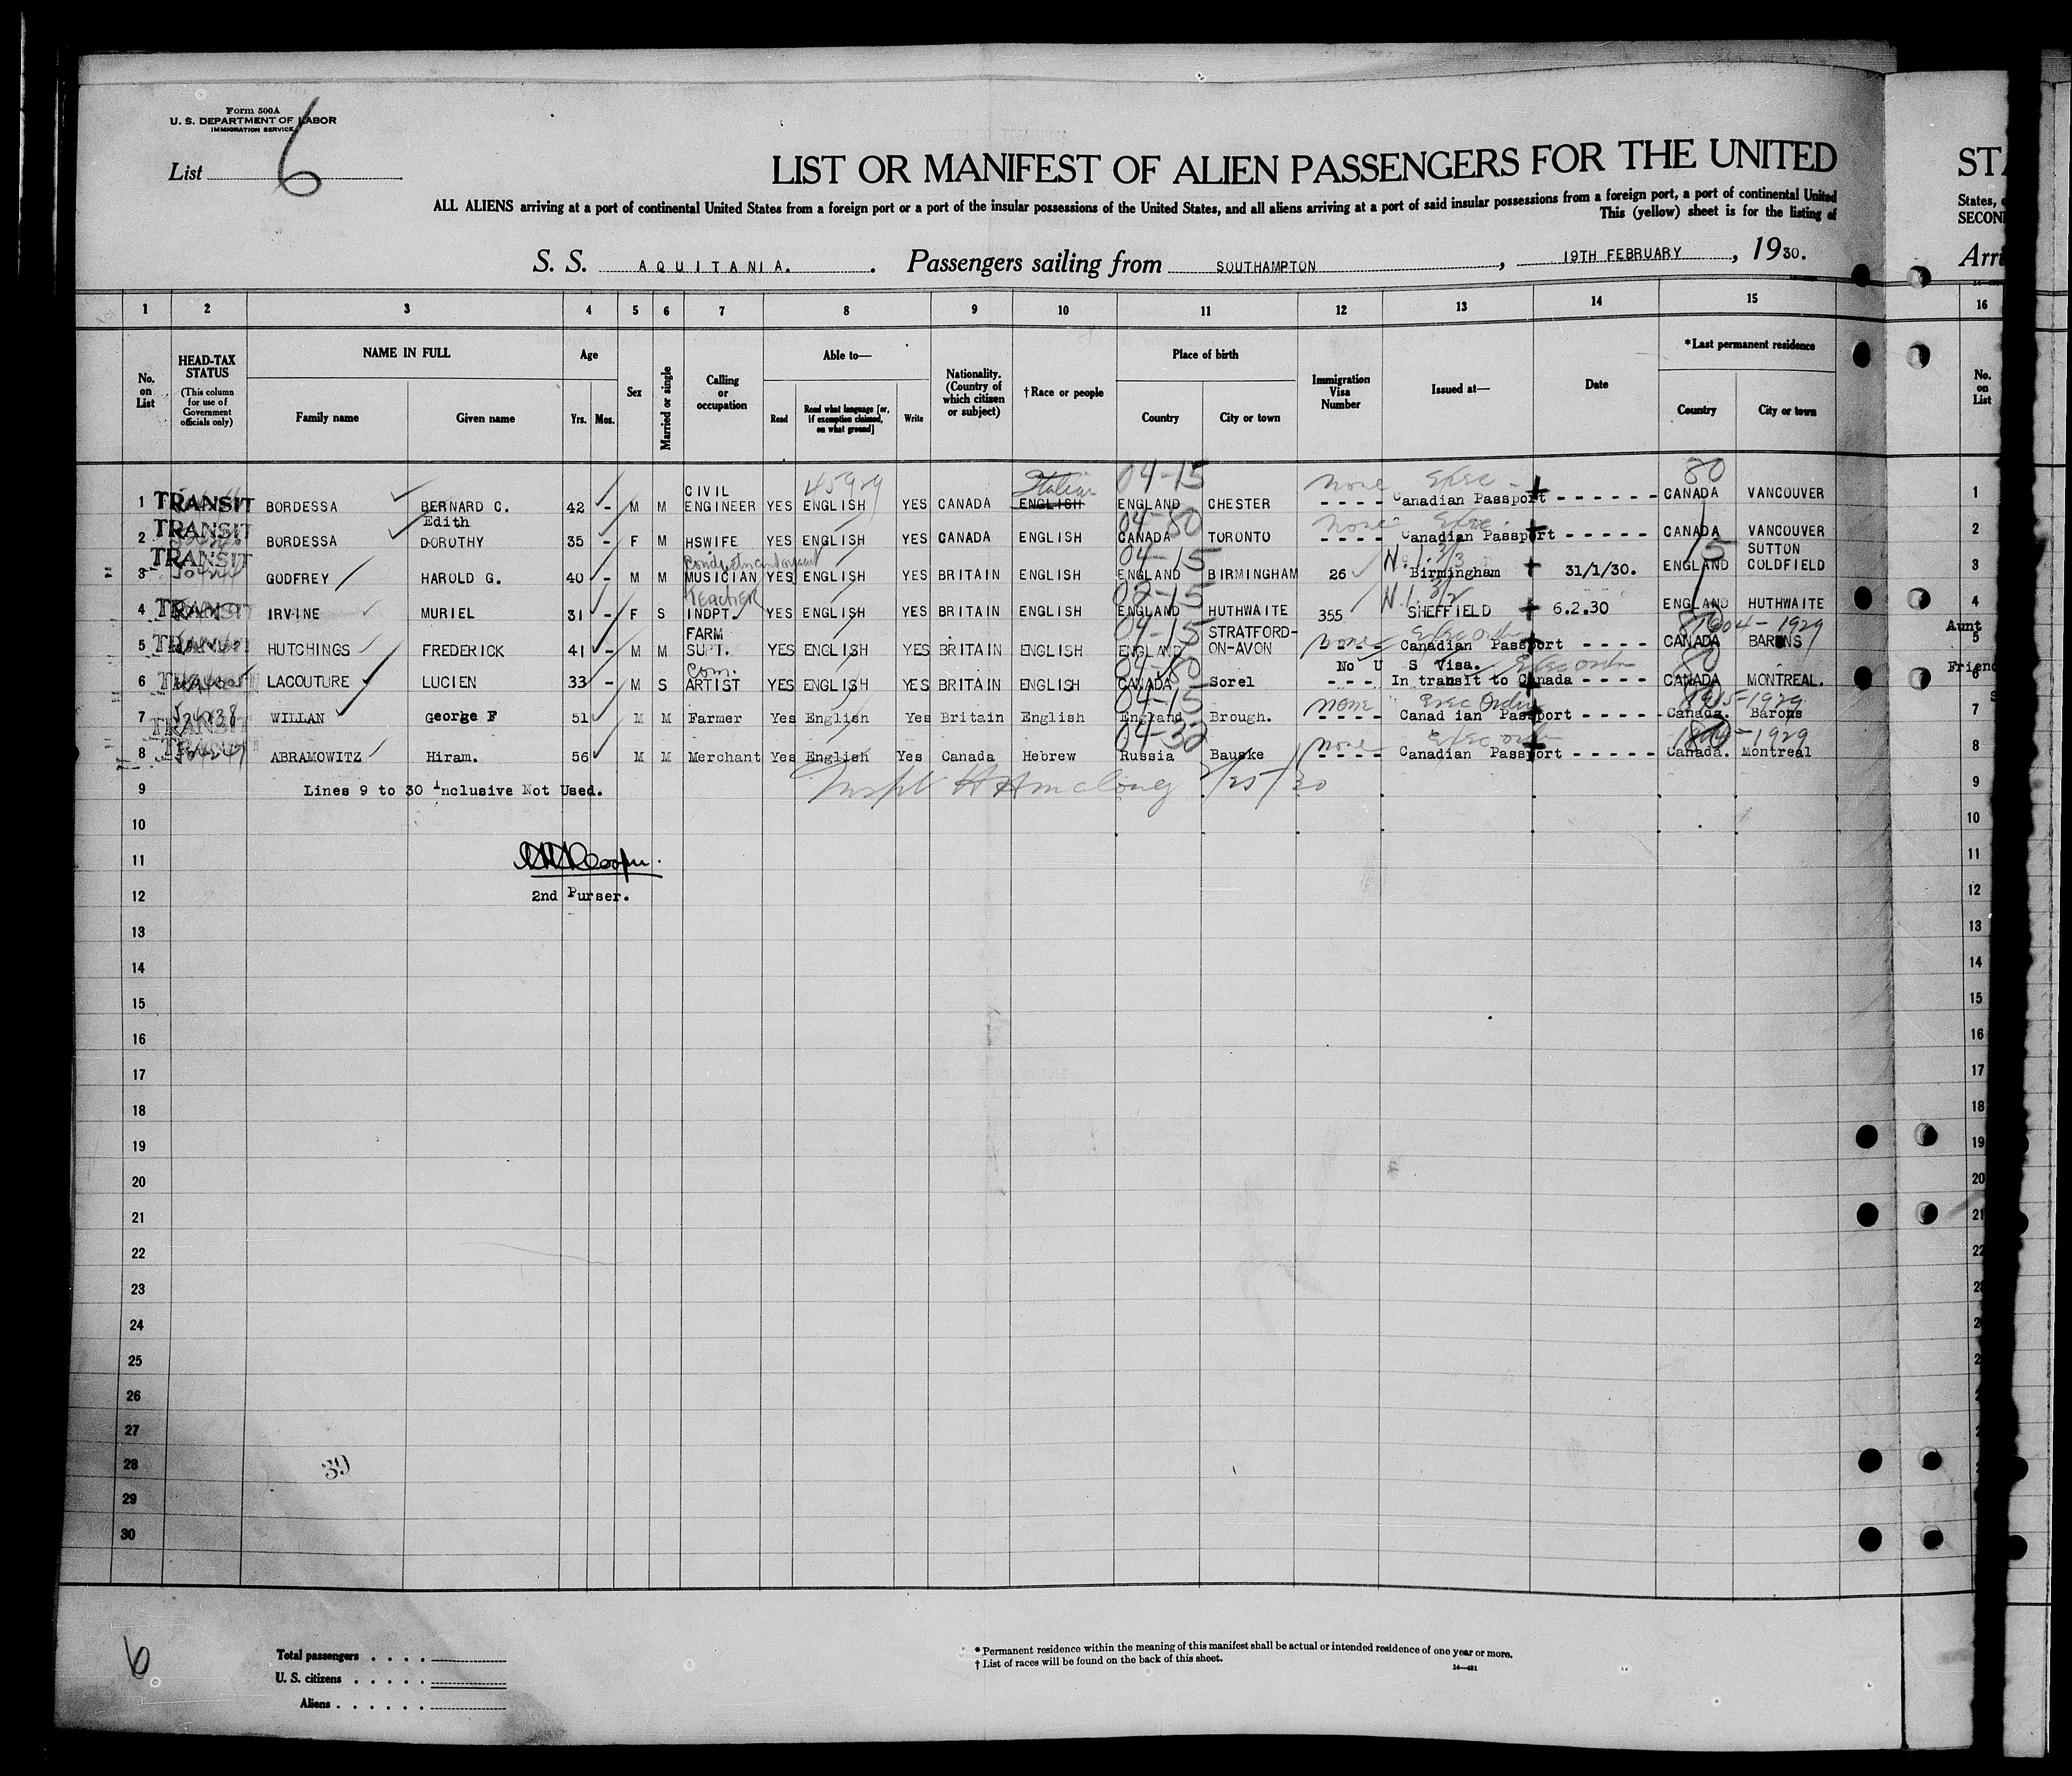 Form 500A
U. S. DEPARTMENT OF LABOR
IMMIGRATION SERVICE
List 6
LIST OR MANIFEST OF ALIEN PASSENGERS FOR THE UNITED
ALL ALIENS arriving at a port of continental United States from a foreign port or a port of the insular possessions of the United States, and all aliens arriving at a port of said insular possessions from a foreign port, a port of continental United
This (yellow) sheet is for the listing of
S. S. AQUITANIA. Passengers sailing from SOUTHAMPTON, 19TH FEBRUARY, 1930.
1 2 3 4 5 6 7 8 9 10 11 12 13 14 15
No. on List
HEAD-TAX STATUS
(This column for use of Government officials only)
NAME IN FULL
Family name Given name
Age
Yrs. Mos.
Sex
Married or single
Calling or occupation
Able to—
Read Read what language [or, if exemption claimed, on what ground] Write
Nationality. (Country of which citizen or subject)
†Race or people
Place of birth
Country City or town
Immigration Visa Number
Issued at—
Date
*Last permanent residence
Country City or town
04-15 80
1 TRANSIT BORDESSA BERNARD C. 42 - M M CIVIL ENGINEER YES ENGLISH YES CANADA ENGLISH Italian ENGLAND CHESTER none - - - - Canadian Passport - - - - - - CANADA VANCOUVER
04-80
2 TRANSIT BORDESSA Edith DOROTHY 35 - F M HSWIFE YES ENGLISH YES CANADA ENGLISH CANADA TORONTO none - - - - Canadian Passport - - - - - CANADA VANCOUVER
04-15 N.I. 3/3 15
3 TRANSIT GODFREY HAROLD G. 40 - M M MUSICIAN YES ENGLISH YES BRITAIN ENGLISH ENGLAND BIRMINGHAM 26 Birmingham 31/1/30. ENGLAND SUTTON COLDFIELD
02-15 N.I. 3/2
4 TRANSIT IRVINE MURIEL 31 - F S TEACHER INDPT. YES ENGLISH YES BRITAIN ENGLISH ENGLAND HUTHWAITE 355 SHEFFIELD 6.2.30 ENGLAND HUTHWAITE
04-15 Exec Order 1904-1929
5 TRANSIT HUTCHINGS FREDERICK 41 - M M FARM SUPT. YES ENGLISH YES BRITAIN ENGLISH ENGLAND STRATFORD-ON-AVON none Canadian Passport - - - - CANADA BARONS
04-80 No U S Visa. Exec order 80
6 TRANSIT LACOUTURE LUCIEN 33 - M S Com. ARTIST YES ENGLISH YES BRITAIN ENGLISH CANADA Sorel - - - In transit to Canada - - - - CANADA MONTREAL.
04-15 Exec Order
7 TRANSIT WILLAN George F 51 M M Farmer Yes English Yes Britain English England Brough. none - - - - Canad ian Passport - - - - - Canada. Barons
04-32 Exec order
8 TRANSIT ABRAMOWITZ Hiram. 56 M M Merchant Yes English Yes Canada Hebrew Russia Bauske none - - - - Canadian Passport - - - - - Canada. Montreal
9 Lines 9 to 30 Inclusive Not Used. 2/25/30
10
11
12 2nd Purser.
13
14
15
16
17
18
19
20
21
22
23
24
25
26
27
28 39
29
30
6
Total passengers
U. S. citizens
Aliens
* Permanent residence within the meaning of this manifest shall be actual or intended residence of one year or more.
† List of races will be found on the back of this sheet.
STA
States,
SECON
Arri
16
No. on List
1
2
3
4
Aunt
5
Friend
6
7
8
9
10
11
12
13
14
15
16
17
18
19
20
21
22